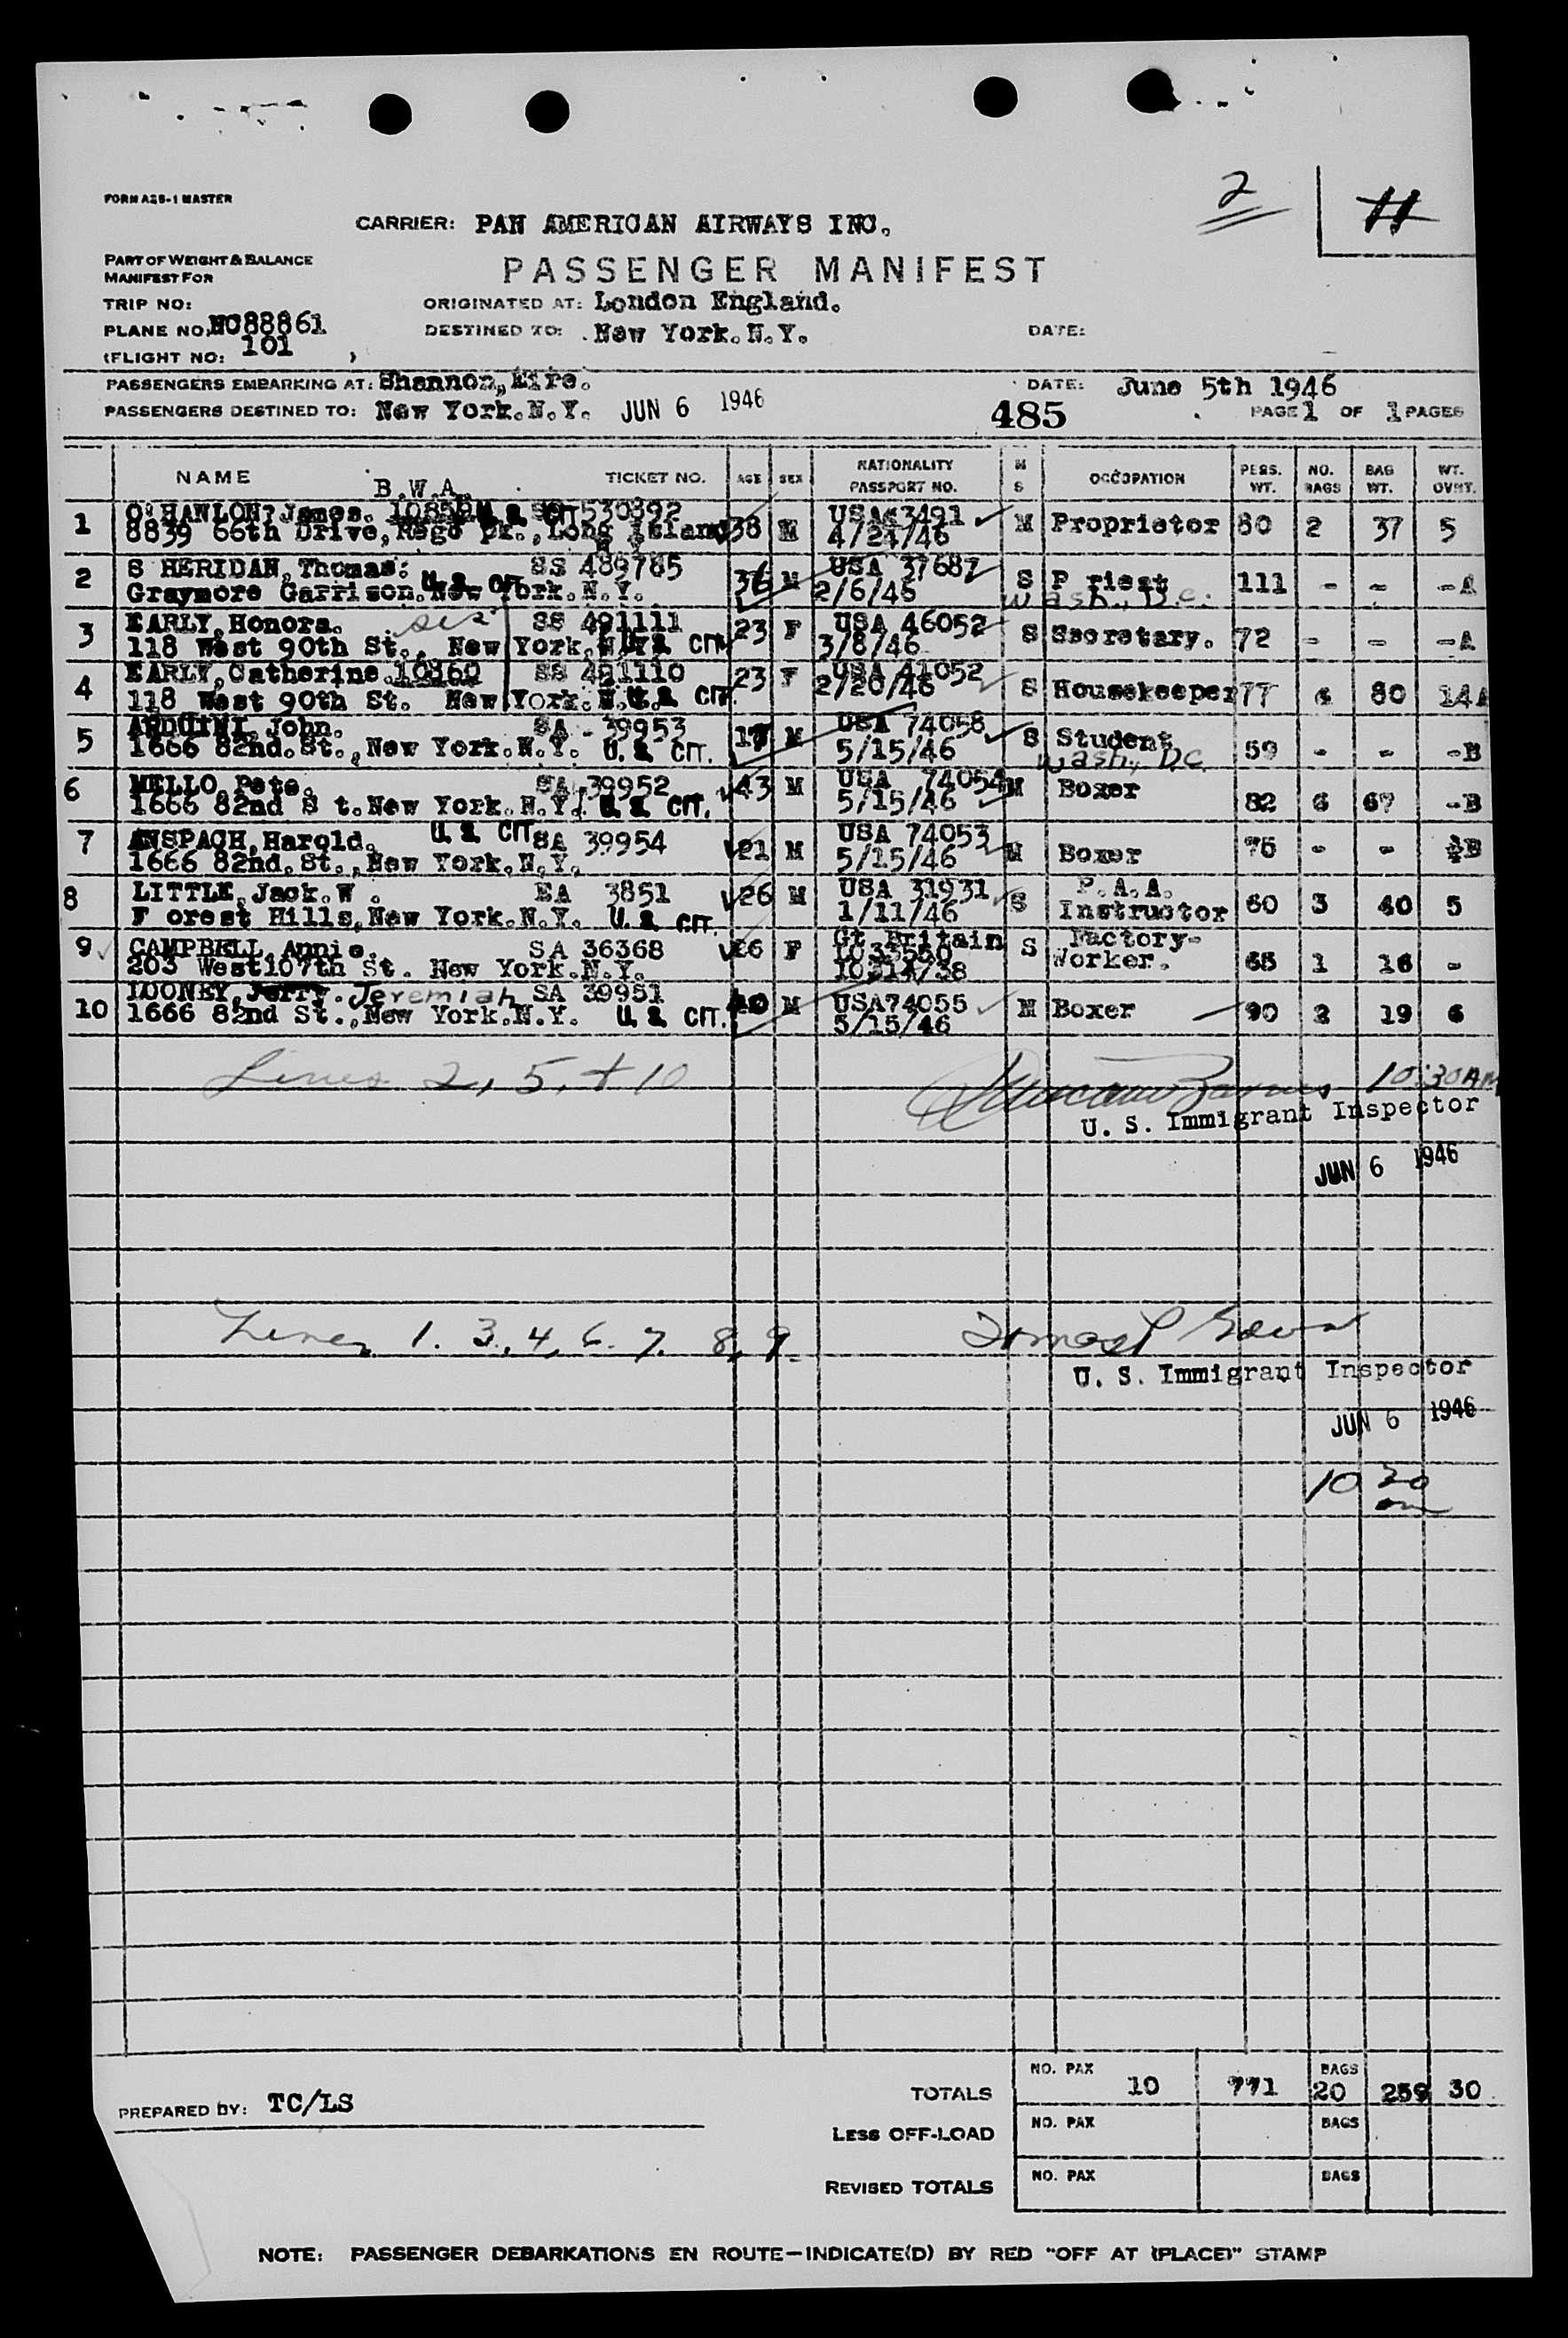 2
H
FORM A28-1 MASTER
CARRIER: PAN AMERICAN AIRWAYS INC.
PART OF WEIGHT & BALANCE
MANIFEST FOR
PASSENGER MANIFEST
TRIP NO:
ORIGINATED AT: London England.
PLANE NO: NC88861
DESTINED TO: New York.N.Y.
DATE:
(FLIGHT NO: 101 )
PASSENGERS EMBARKING AT: Shannon, Eire.
DATE: June 5th 1946
PASSENGERS DESTINED TO: New York.N.Y. JUN 6 1946
485
PAGE 1 OF 1 PAGES
NAME TICKET NO. AGE SEX NATIONALITY PASSPORT NO. M S OCCUPATION PERS. WT. NO. BAGS BAG WT. WT. OVHT.
B.W.A.
1 O'HANLON? James. 530392 38 M USA 43491 M Proprietor 80 2 37 5
8839 66th Drive, Rego pk., Long Island 4/24/46
2 S HERIDAN, Thomas. SS 489785 36 M USA 37687 S P riest 111 - - -A
Graymore Garrison. New York.N.Y. U.S. CIT. 2/6/46 Wash., D.C.
3 EARLY, Honora. SS 491111 23 F USA 46052 S Secretary. 72 - - -A
118 West 90th St., New York.N.Y. U.S. CIT. 3/8/46
4 EARLY, Catherine. 10360 SS 491110 23 F USA 41052 S Housekeeper 77 6 80 14A
118 West 90th St. New York.N. U.S. CIT. 2/20/46
5 ARDUINI, John. SA - 39953 17 M USA 74058 S Student 59 - - -B
1666 82nd.St., New York.N.Y. U.S. CIT. 5/15/46 Wash., D.C.
6 MELLO, Pete. SA. 39952 43 M USA 74054 M Boxer 82 6 67 -B
1666 82nd S t.New York.N.Y. U.S. CIT. 5/15/46
7 ANSPACH, Harold. U.S. CIT. SA 39954 21 M USA 74053 M Boxer 75 - - B
1666 82nd.St., New York.N.Y. 5/15/46
8 LITTLE, Jack.W . EA 3851 26 M USA 31931 S P.A.A. Instructor 60 3 40 5
F orest Hills, New York.N.Y. U.S. CIT. 1/11/46
9 CAMPBELL, Annie. SA 36368 26 F Gt Britain S Factory- Worker. 65 1 16 -
203 West107th St. New York.N.Y.
10 LOONEY, Jerry. Jeremiah SA 39951 40 M USA74055 M Boxer 90 2 19 6
1666 82nd St., New York.N.Y. U.S. CIT. 5/15/46
Lines 2, 5, + 10
10:30 AM
U. S. Immigrant Inspector
JUN 6 1946
Lines 1. 3, 4, 6. 7. 8, 9.
U. S. Immigrant Inspector
JUN 6 1946
10 20
am
TOTALS NO. PAX 10 771 BAGS 20 259 30
PREPARED BY: TC/LS
LESS OFF-LOAD NO. PAX BAGS
REVISED TOTALS NO. PAX BAGS
NOTE: PASSENGER DEBARKATIONS EN ROUTE—INDICATE(D) BY RED "OFF AT (PLACE)" STAMP